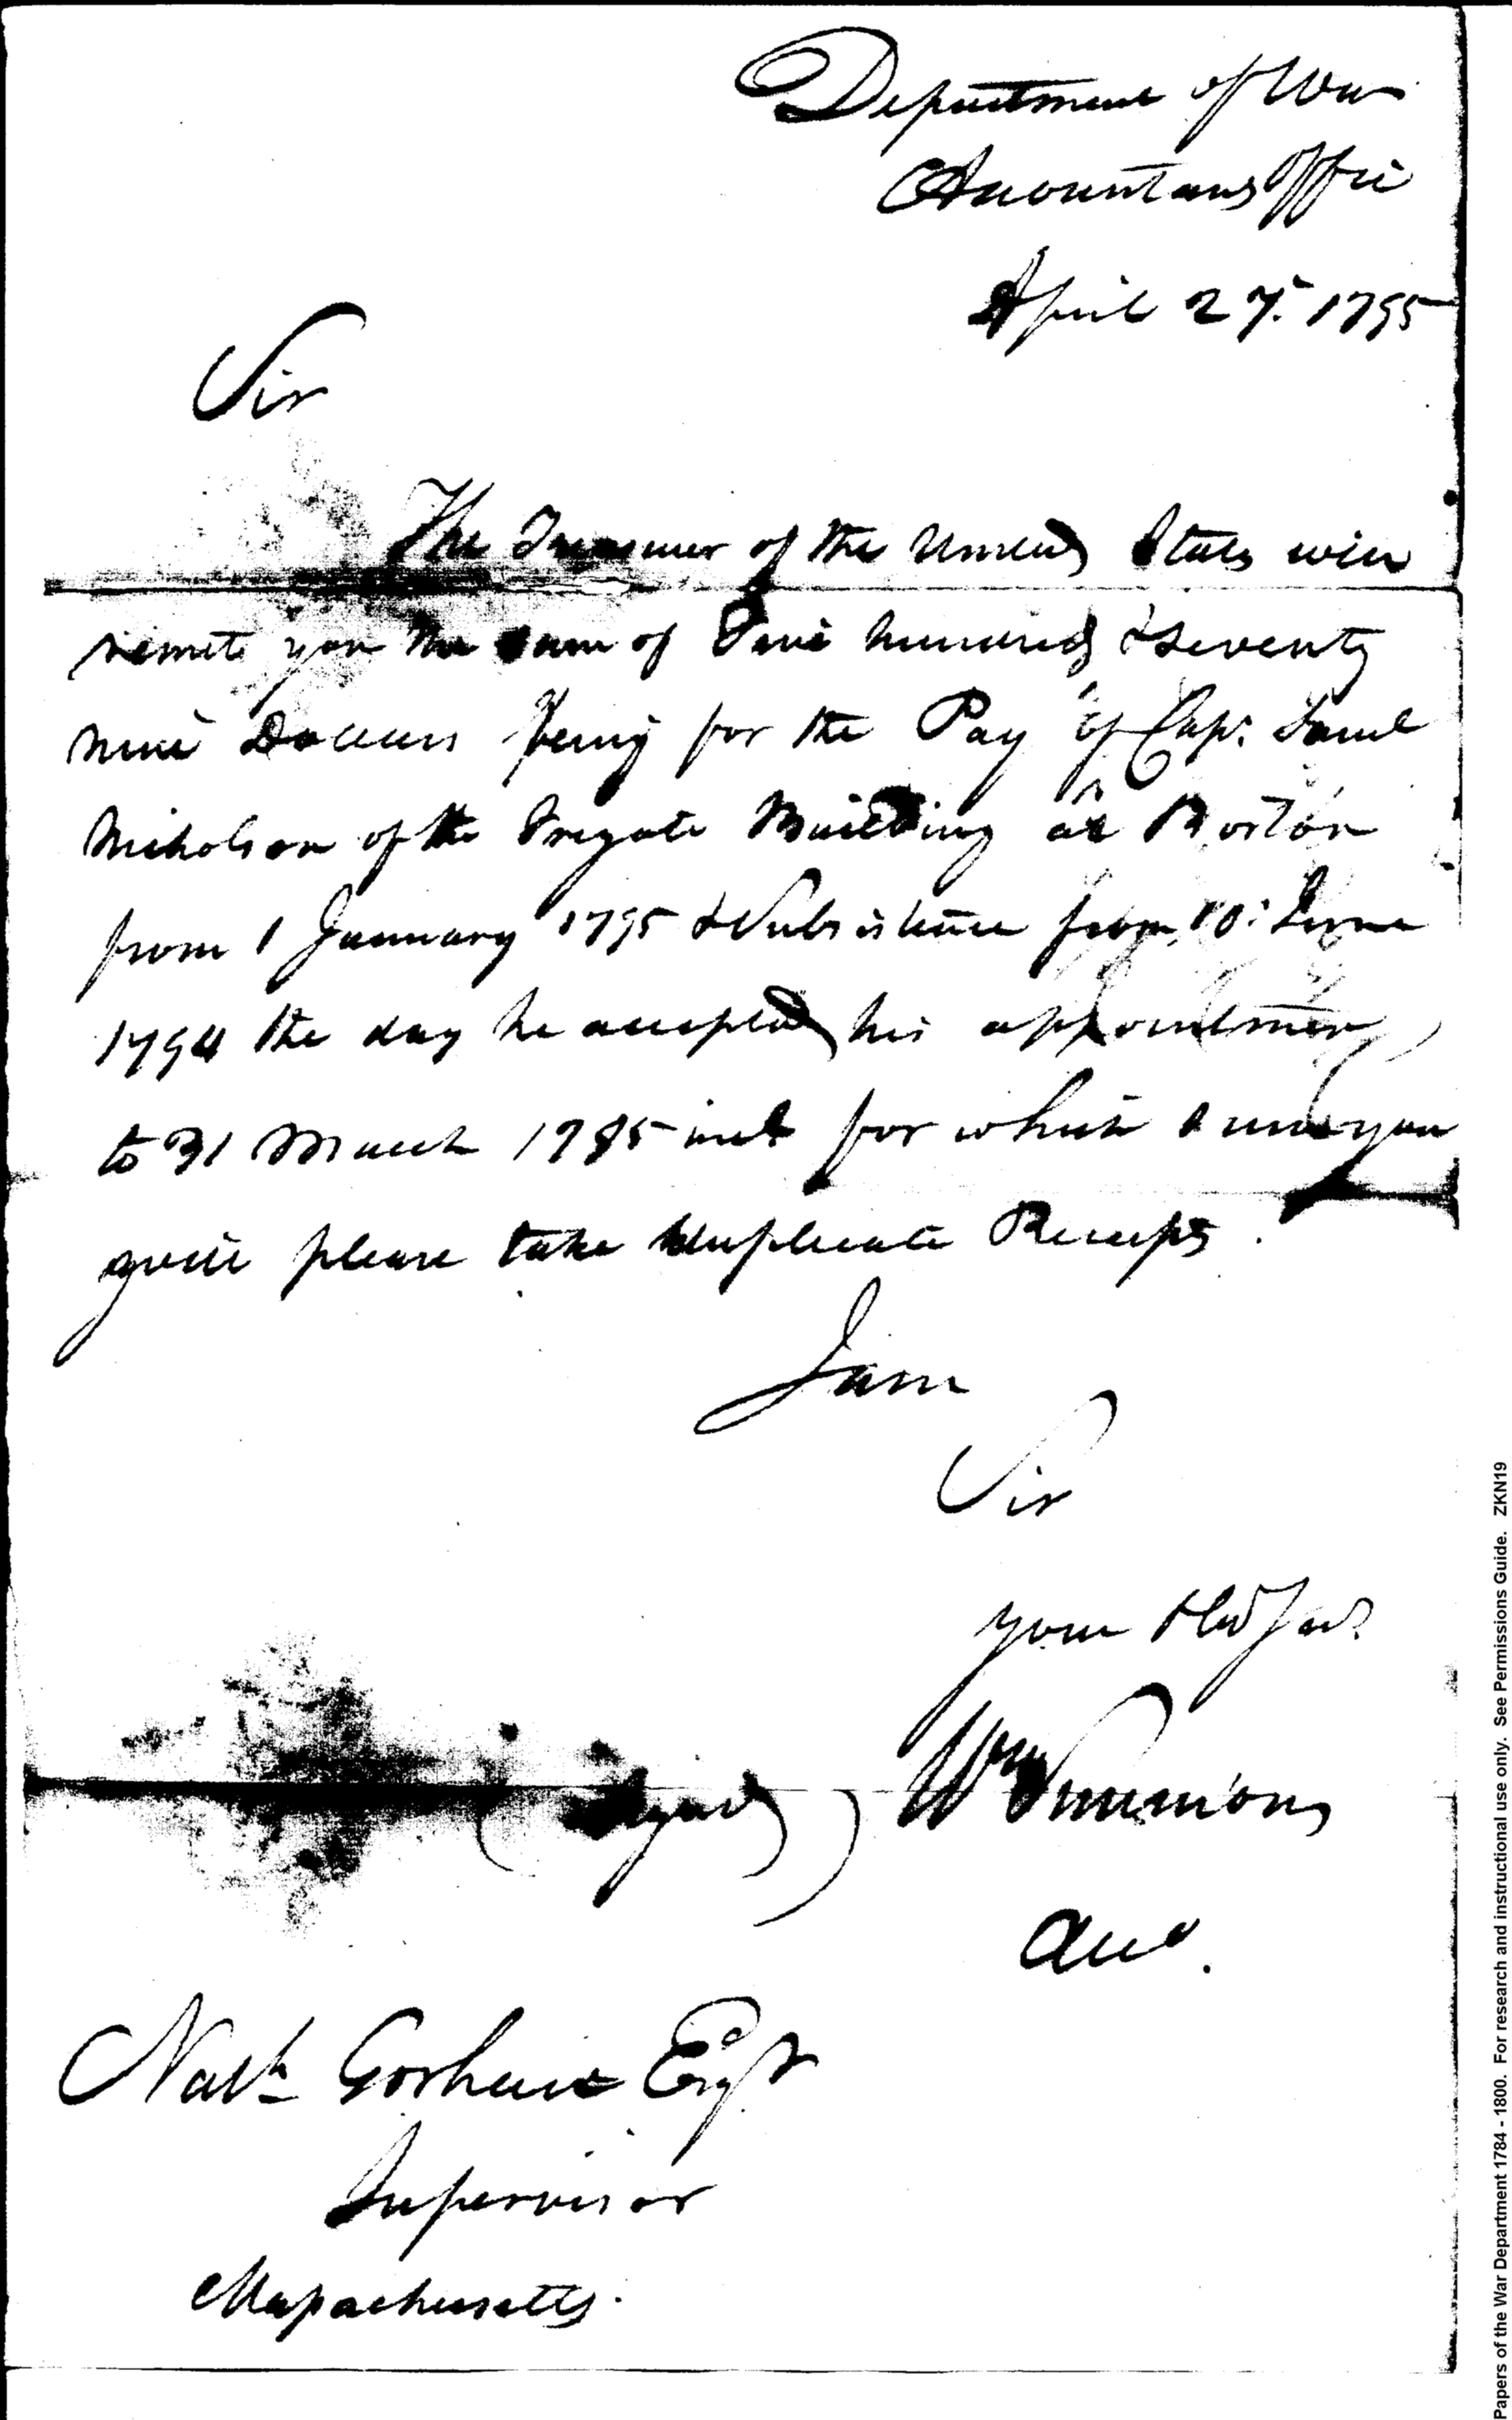 Department of War
Accountants Office
April 27. 1795
Sir
The Treasurer of the United States will
remit you the sum of Five hundred & seventy
nine Dollars being for the Pay of Capt. Saml
Nicholson of the Frigate Building at Boston
from 1 January 1795 & Subsistence from 10. June
1794 the day he accepted his appointment
to 31 March 1795 incl for which
please take duplicate Receipts.
I am
Sir
your Obd Servt
(signed) Wm Simmons
Acct.
Nathl Gorham Esqr
Supervisor
Massachusetts.
Papers of the War Department 1784 - 1800. For research and instructional use only. See Permissions Guide. ZKN19